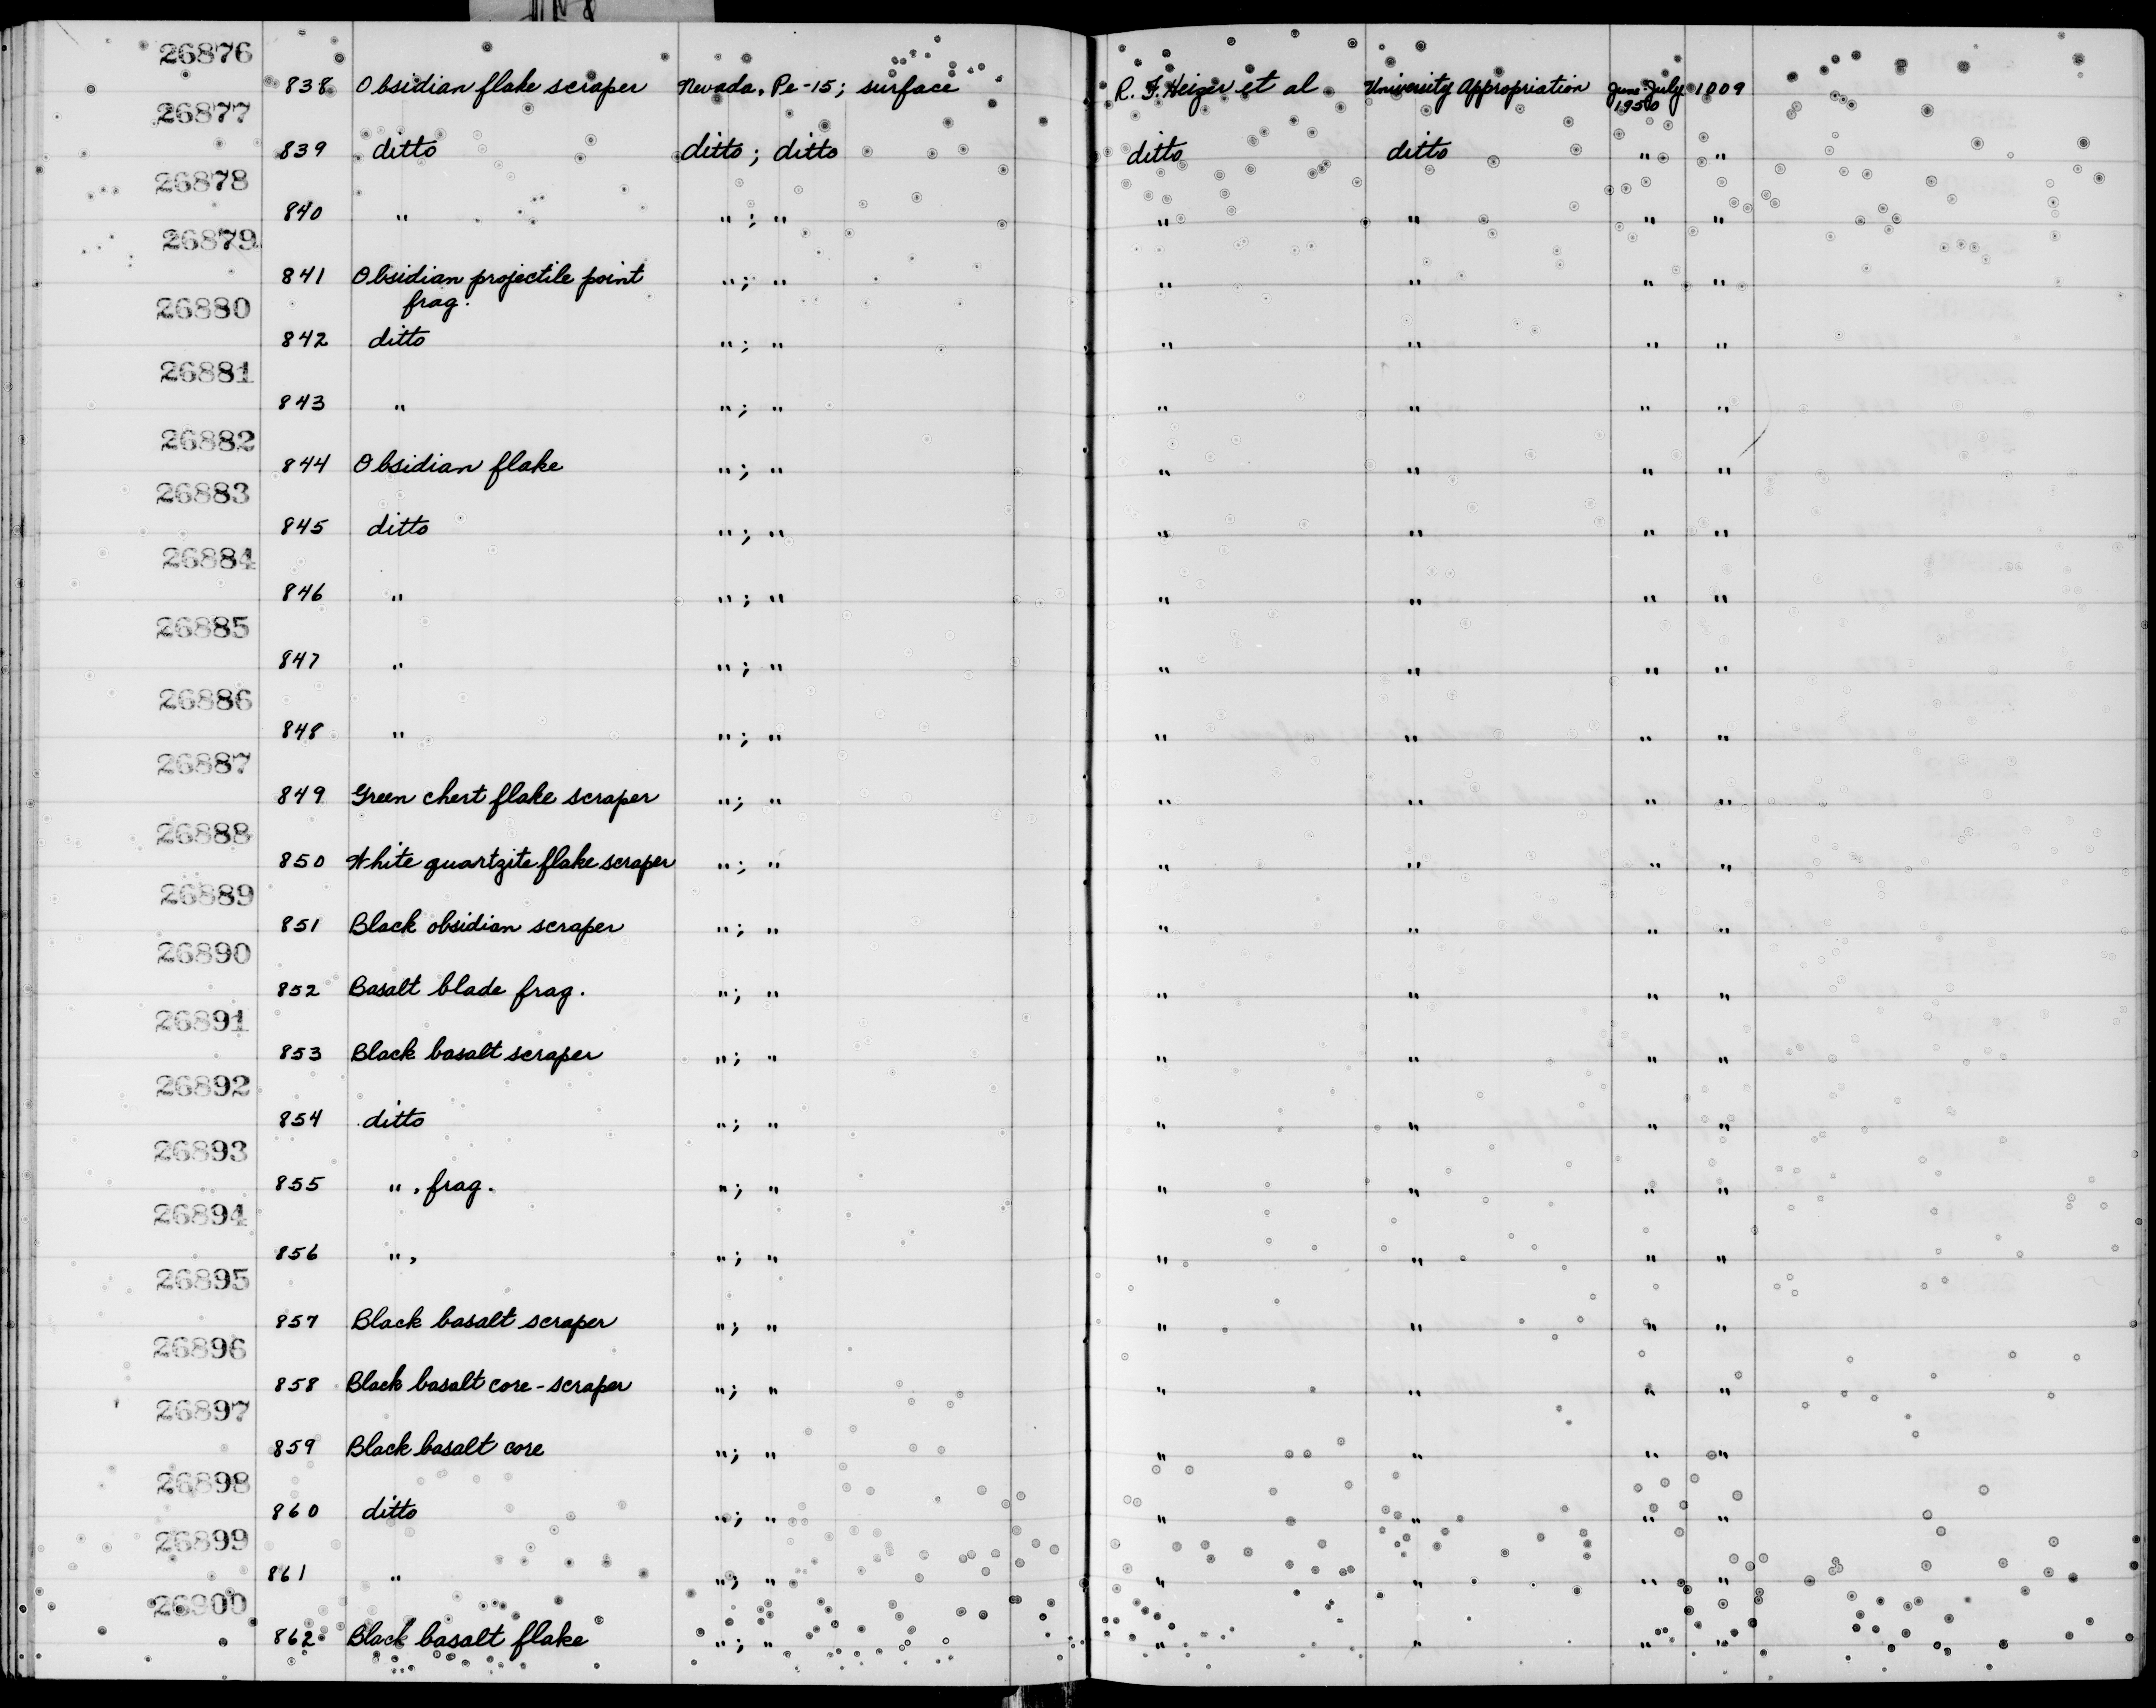 26876
838 Obsidian flake scraper Nevada, Pe-15; surface R. F. Heizer et al University Appropriation June-July 1950 1009
26877
839 ditto ditto; ditto ditto ditto " "
26878
840 " "; " " " " "
26879
841 Obsidian projectile point frag. "; " " " " "
26880
842 ditto "; " " " " "
26881
843 " "; " " " " "
26882
844 Obsidian flake "; " " " " "
26883
845 ditto "; " " " " "
26884
846 " "; " " " " "
26885
847 " "; " " " " "
26886
848 " "; " " " " "
26887
849 Green chert flake scraper "; " " " " "
26888
850 White quartzite flake scraper "; " " " " "
26889
851 Black obsidian scraper "; " " " " "
26890
852 Basalt blade frag. "; " " " " "
26891
853 Black basalt scraper "; " " " " "
26892
854 ditto "; " " " " "
26893
855 ", frag. "; " " " " "
26894
856 ", "; " " " " "
26895
857 Black basalt scraper "; " " " " "
26896
858 Black basalt core-scraper "; " " " " "
26897
859 Black basalt core "; " " " " "
26898
860 ditto "; " " " " "
26899
861 " "; " " " " "
26900
862 Black basalt flake "; " " " " "